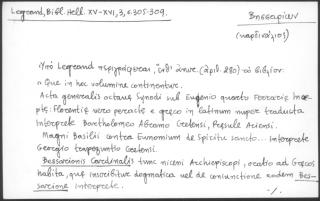 Legrand, Bibl. Hell. XV-XVI, 3, σ. 305-309.
Βησσαρίων
(καρδινάλιος)
Ὑπὸ Legrand περιγράφεται, ἔνθ' ἀνωτ. (ἀριθ. 290) τὸ βιβλίον:
« Que in hoc volumine continentur.
Acta generalis octaue Synodi sub Eugenio quarto Ferrarie Inceptę: Florentie vero peracte e greco in latinum nuper traducta
Interprete Bartholomeo Abramo Cretensi, Pręsule Ariensi.
Magni Basilii contra Eunomium de Spiritu sancto... Interprete
Georgio trapezuntio Cretensi.
Bessarionis Cardinalis tunc niceni Archiepiscopi, oratio ad Grecos
habita, quę inscribitur dogmatica vel de coniunctione eodem Bessarione Interprete.
-/.